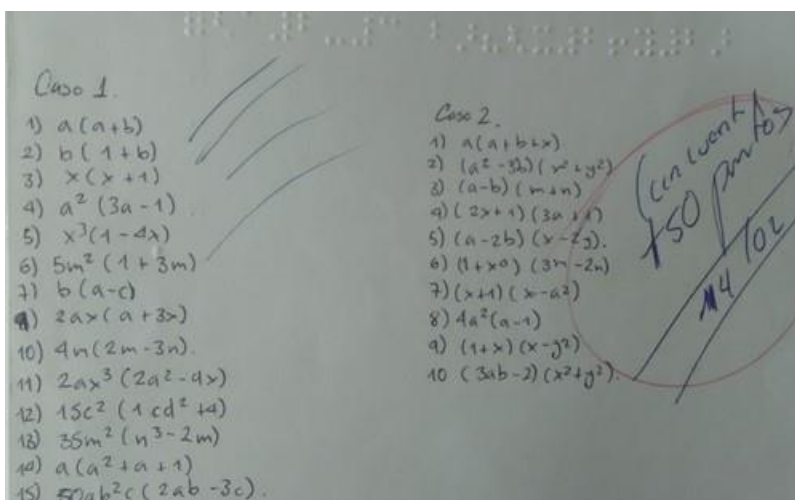 Caso 1.
1) a(a+b)
2) b(1+b)
3) x(x+1)
4) a² (3a-1)
5) x³(1-4x)
6) 5m² (1+3m)
7) b(a-c)
9) 2ax(a+3x)
10) 4n(2m-3n).
11) 2ax³ (2a²-4x)
12) 15c² (1cd²+4)
13) 35m² (n³-2m)
14) a(a²+a+1)
15) 50ab²c(2ab-3c).
Caso 2.
1) a(a+b+x)
2) (a²-3b)(x²+y²)
3) (a-b)(m+n)
4) (2x+1)(3a+1)
5) (a-2b)(x-2y).
6) (1+x⁰)(3m-2n)
7) (x+1)(x-a²)
8) 4a²(a-1)
9) (1+x)(x-y²)
10 (3ab-2)(x²+y²).
+50 puntos